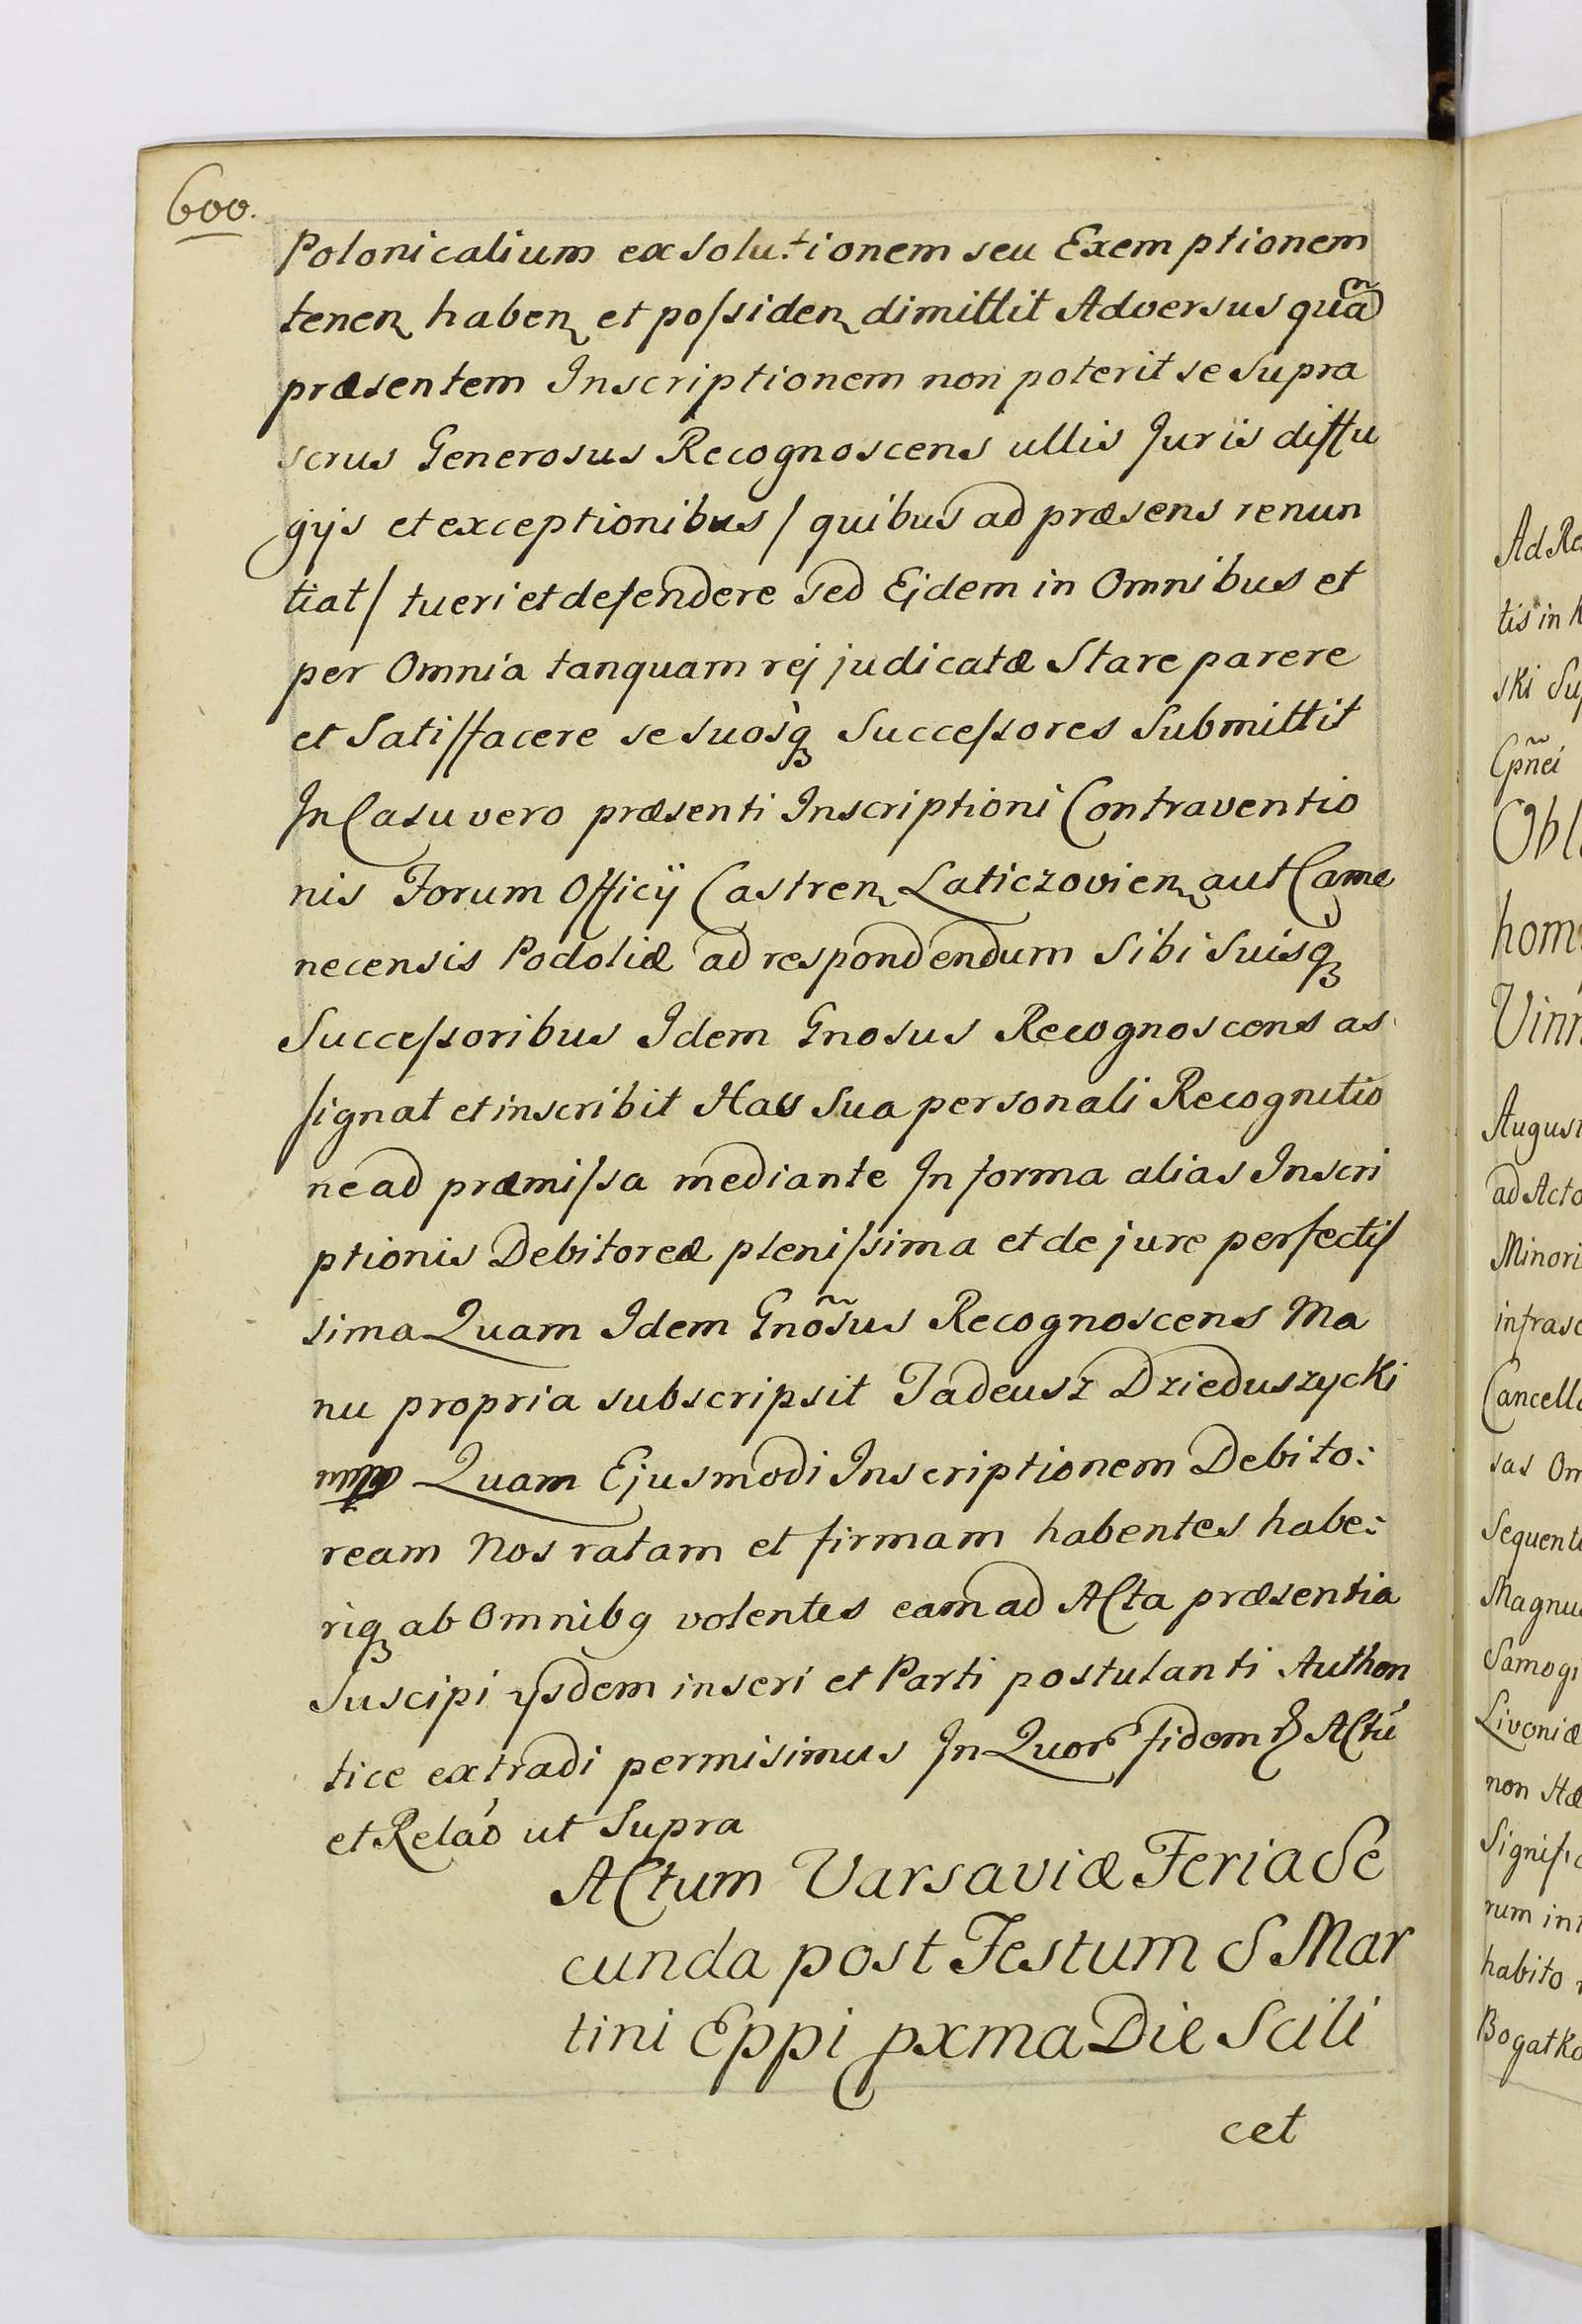 600.
Polonicalium exsolu:tionem seu Exemptionem
tenen haben et possiden dimittit Adversus quã
præsentem Inscriptionem non poterit se supra
scrus Generosus Recognoscens ullis Juris diffu
gijs et exceptionibus / quibus ad præsens renun
tiat / tueri et defendere sed Ejdem in Omnibus et
per Omnia tanquam rej judicatæ Stare parere
et Satisfacere se suosq Successores Submittit
In Casu vero præsenti Inscriptioni Contraventio
nis Forum Officij Castren Laticzovien aut Came
necensis Podoliæ ad respondendum Sibi Suisq
Successoribus Idem Gnosus Recognoscens as
signat et inscribit Hac Sua personali Recognitio
ne ad præmissa mediante In forma alias Inscri
ptionis Debitoreæ plenissima et de jure perfectis
sima Quam Idem Gnõsus Recognoscens Ma
nu propria subscripsit Tadeusz Dzieduszycki
mp Quam Ejusmodi Inscriptionem Debito:
ream Nos ratam et firmam habentes habe:
riq ab Omnibq volentes eam ad ACta præsentia
Suscipi ysdem inseri et Parti postulanti Authen
tice extradi permisimus In Quor fidem ACtú
et Relaó ut Supra
ACtum Varsaviæ Feria Se
cunda post Festum S Mar
tini Eppi pxma Die Scili
cet
Ad Re
tis in K
ski Su
Cpñei
Obl
hom
Vinn
August
ad Acto
Minori
infrasc
Cancella
sas Om
Sequenti
Magnu
Samogi
Livoniæ
non Hæ
Signific
rum int
habito
Bogatko